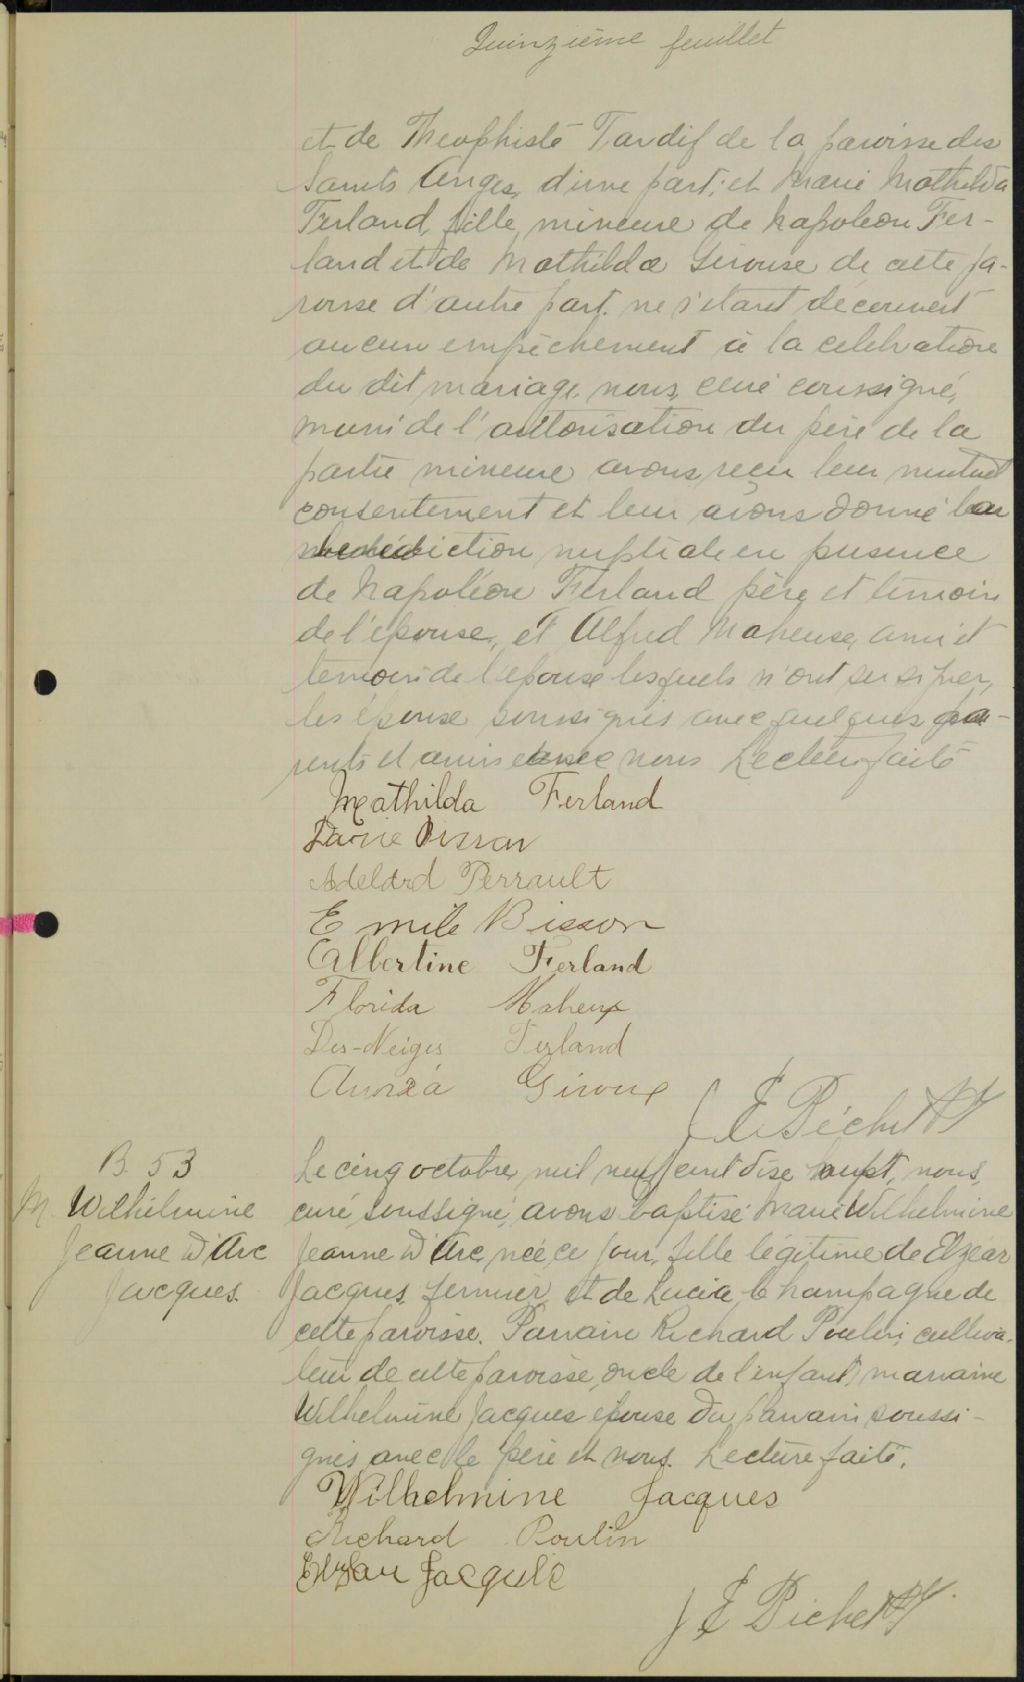 Quinzième feuillet
et de Theophiste Tardif de la paroisse des
Saints Anges, d'une part; et Marie Mathilda
Ferland, fille mineure de Napoléon Fer-
land et de Mathilda Giroux de cette pa-
roisse d'autre part. ne s'étant découvert
aucun empêchement à la célébration
du dit mariage, nous, curé soussigné,
muni de l'autorisation du père de la
partie mineure avons reçu leur mutuel
consentement et leur avons donné la
bénédiction nuptiale en présence
de Napoléon Ferland père et témoin
de l'épouse, et Alfred Maheux, ami et
témoin de l'époux lesquels n'ont su signer,
les époux soussignés avec quelques pa-
rents et amis avec nous Lecture faite
Mathilda Ferland
Bisson
Adelard Perrault
Emile Bisson
Albertine Ferland
Florida Maheux
Des-Neiges Ferland
Auroza Giroux
J E Pichet Ptr
B. 53
M. Wilhelmine
Jeanne d'Arc
Jacques.
Le cinq octobre, mil neuf cent dix sept, nous,
curé soussigné, avons baptisé Marie Wilhelmine
Jeanne d'Arc, née ce jour, fille légitime de Elzéar
Jacques, fermier, et de Lucia Champagne de
cette paroisse. Parrain Richard Poulin, cultiva-
teur de cette paroisse, oncle de l'enfant, marraine
Wilhelmine Jacques épouse du parrain soussi-
gnés avec le père et nous. Lecture faite.
Wilhelmine Jacques
Richard Poulin
Elzear Jacques
J E Pichet Ptr